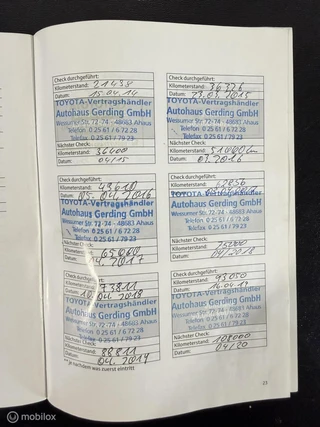 Check durchgeführt:
Kilometerstand: 21434
Datum: 15.04.14
TOYOTA-Vertragshändler
Autohaus Gerding GmbH
Wessumer Str. 72-74 - 48683 Ahaus
Telefon 0 25 61 / 6 72 28
Telefax 0 25 61 / 79 23
Nächster Check:
Kilometerstand: 36400
Datum: 04/15
Check durchgeführt:
Kilometerstand: 49610
Datum: 04 2016
TOYOTA-Vertragshändler
Autohaus Gerding GmbH
Wessumer Str. 72-74 - 48683 Ahaus
Telefon 0 25 61 / 6 72 28
Telefax 0 25 61 / 79 23
Nächster Check:
Kilometerstand: 65000
Datum: 2017
Check durchgeführt:
Kilometerstand: 73811
Datum: 04 2018
TOYOTA-Vertragshändler
Autohaus Gerding GmbH
Wessumer Str. 72-74 - 48683 Ahaus
Telefon 0 25 61 / 6 72 28
Telefax 0 25 61 / 79 23
Nächster Check:
Kilometerstand: 88811
Datum: 04.2019
** je nachdem was zuerst eintritt
Check durchgeführt:
Kilometerstand: 36326
Datum: 23.03.2015
TOYOTA-Vertragshändler
Autohaus Gerding GmbH
Wessumer Str. 72-74 - 48683 Ahaus
Telefon 0 25 61 / 6 72 28
Telefax 0 25 61 / 79 23
Nächster Check:
Kilometerstand:
Datum: 03.2016
Check durchgeführt:
Kilometerstand:
TOYOTA-Vertragshändler
Autohaus Gerding GmbH
Wessumer Str. 72-74 - 48683 Ahaus
Telefon 0 25 61 / 6 72 28
Telefax 0 25 61 / 79 23
Nächster Check:
Kilometerstand:
Datum:
Check durchgeführt:
Kilometerstand: 93050
Datum: 16.04.19
TOYOTA-Vertragshändler
Autohaus Gerding GmbH
Wessumer Str. 72-74 - 48683 Ahaus
Telefon 0 25 61 / 6 72 28
Telefax 0 25 61 / 79 23
Nächster Check:
Kilometerstand: 108000
Datum: 04/20
23
mobilox